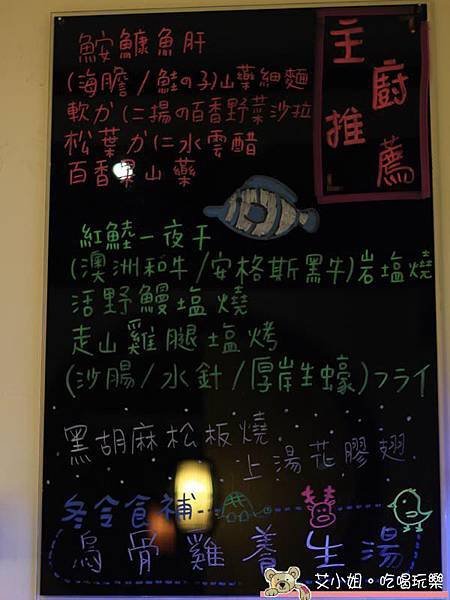 主廚推薦
鮟鱇魚肝
(海膽/鮭の子)山藥細麵
軟かに揚の百香野菜沙拉
松葉かに水雲醋
百香果山藥
紅鯥一夜干
(澳洲和牛/安格斯黑牛)岩塩燒
活野鰻塩燒
走山雞腿塩烤
(沙腸/水針/厚岸生蠔)フライ
黑胡麻松板燒
上湯花膠翅
冬令食補
烏骨雞養生湯
艾小姐。吃喝玩樂